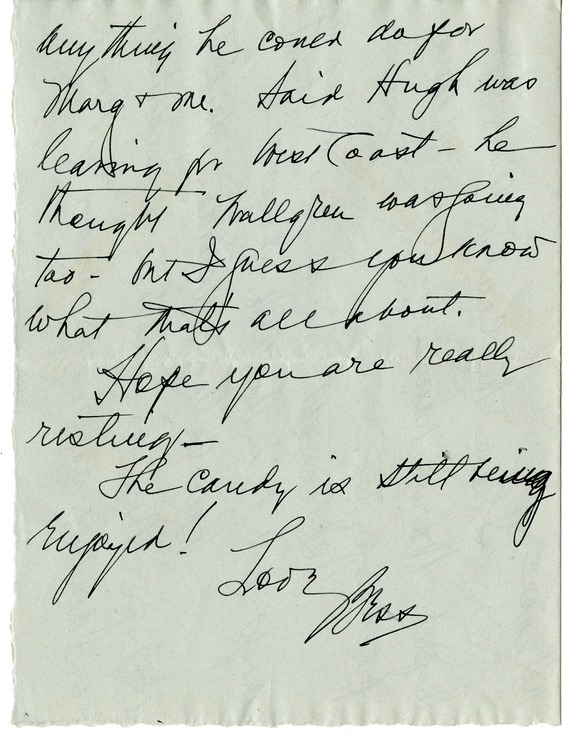 anything he could do for
Marg & me. Said Hugh was
leaving for West Coast – he
thought Wallgren was going
too – but I guess you know
what that's all about.
Hope you are really
resting –
The candy is still being
enjoyed!
Love
Bess